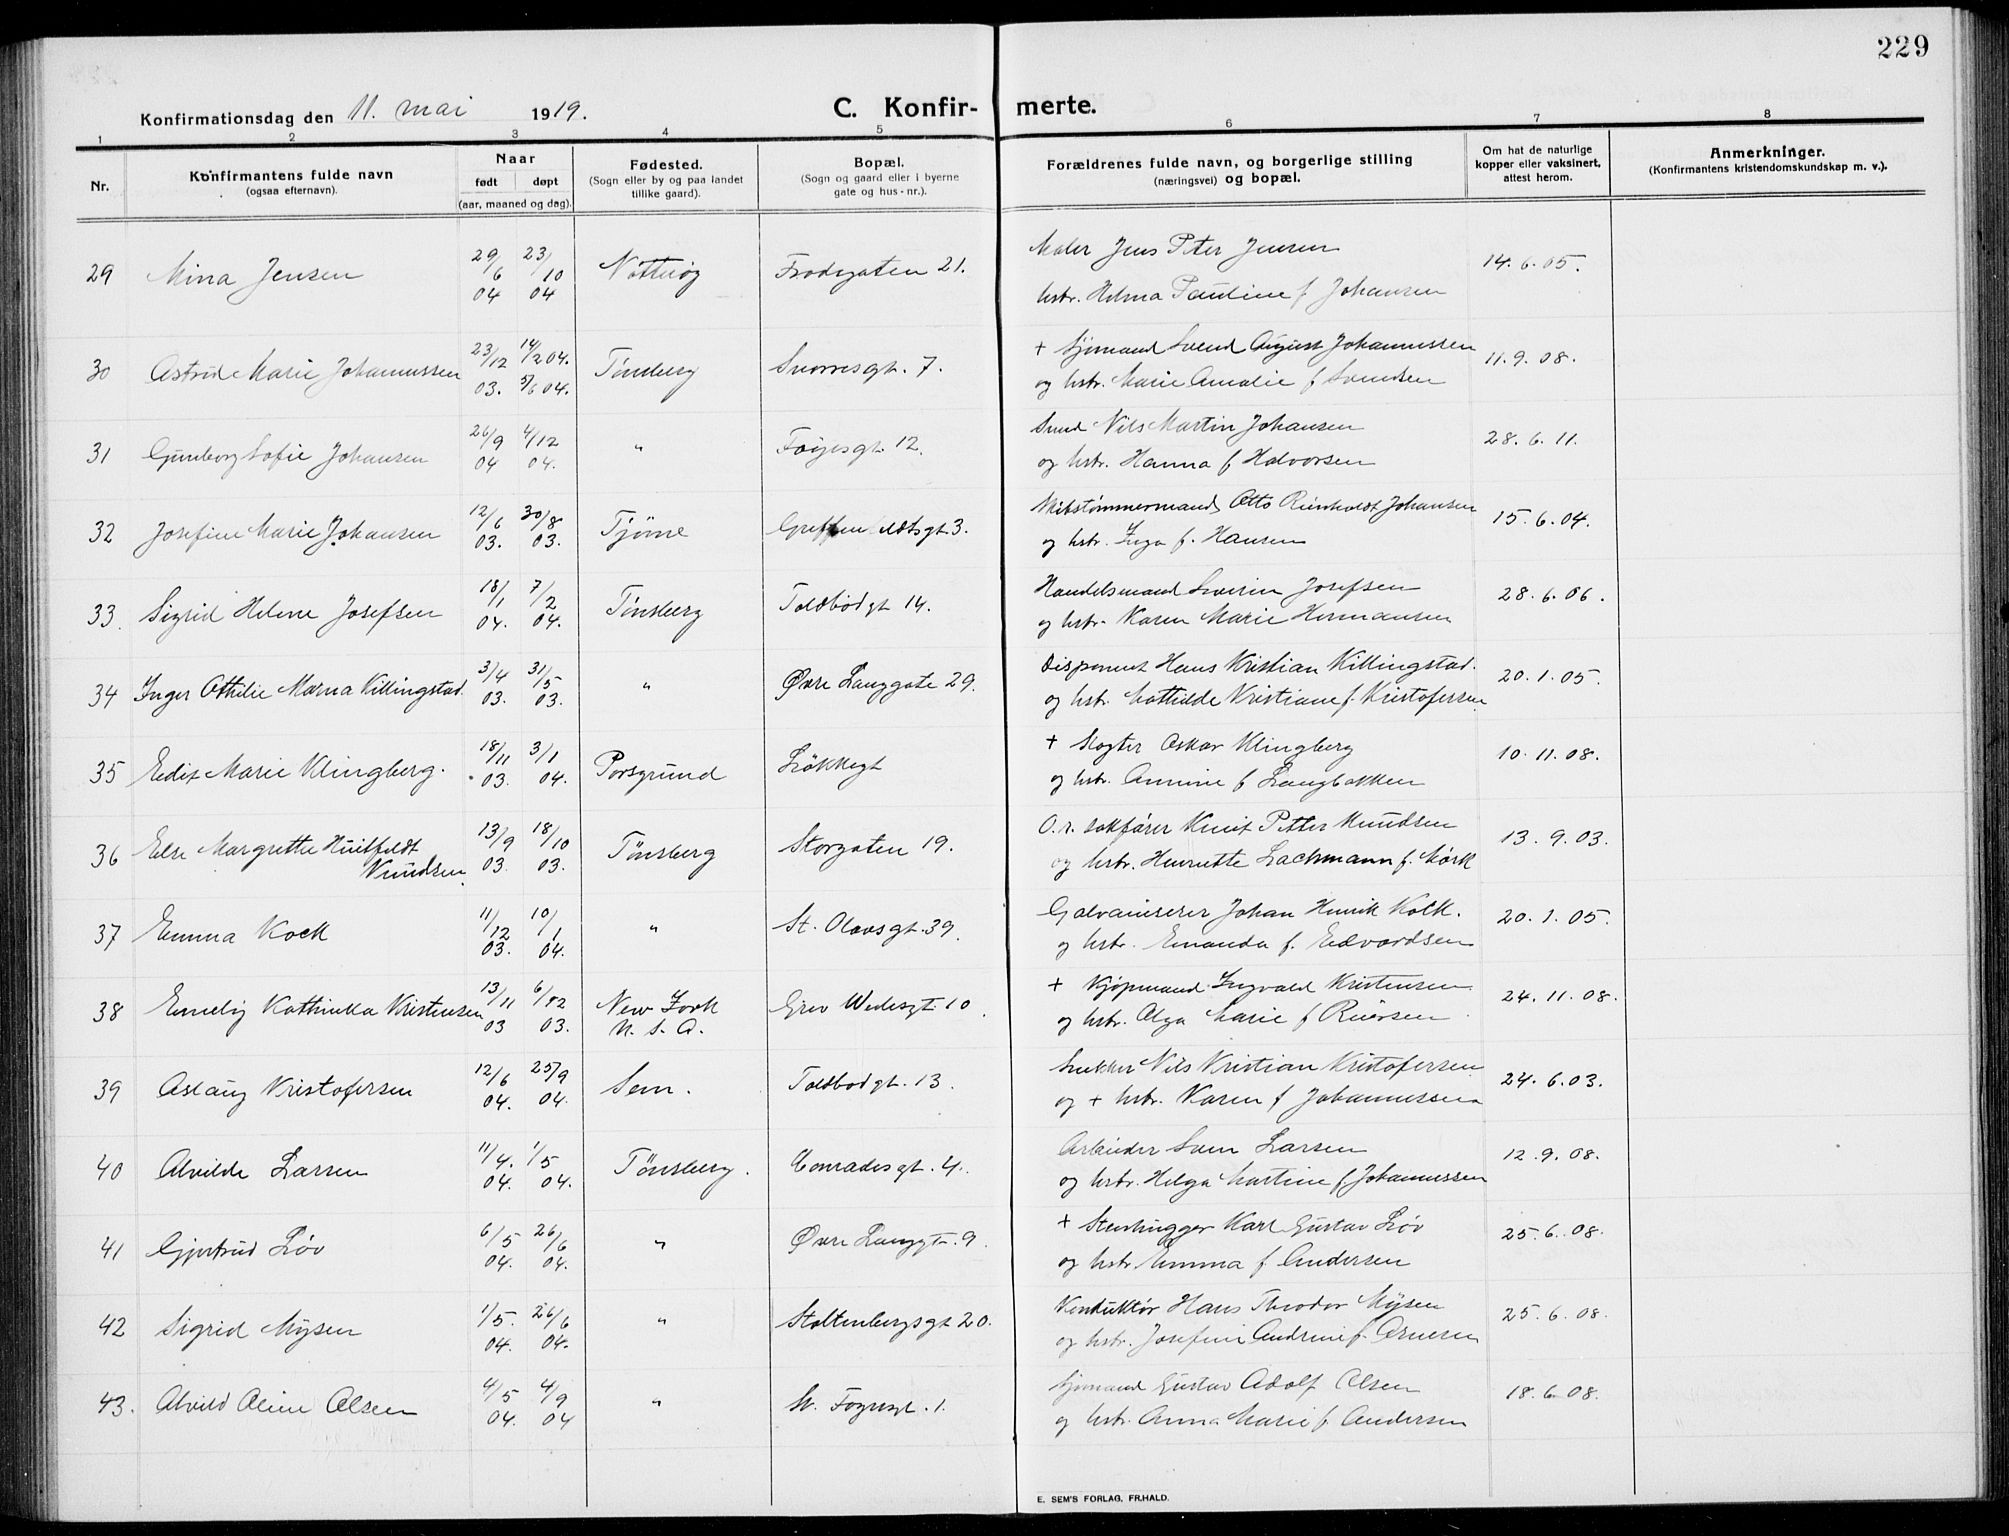 229
Konfirmationsdag den 11. mai 1919.
C. Konfirmerte.
1 2 3 4 5 6 7 8
Nr.
Konfirmantens fulde navn
(ogsaa efternavn).
Naar
født døpt
(aar, maaned og dag).
Fødested.
(Sogn eller by og paa landet
tillike gaard).
Bopæl.
(Sogn og gaard eller i byerne
gate og hus-nr.).
Forældrenes fulde navn, og borgerlige stilling
(næringsvei) og bopæl.
Om hat de naturlige
kopper eller vaksinert,
attest herom.
Anmerkninger.
(Konfirmantens kristendomskundskap m. v.).
29 Mina Jensen 29/6 04 23/10 04 Nøtterøy Frodegaten 21. Maler Jens Peter Jensen 14.6.05.
hstr. Helma Pauline f Johansen
30 Astrid Marie Johannessen 23/12 03. 14/2 04. 5/6 04. Tønsberg Snorresgt. 7. + Sjømand Svend August Johannessen 11.9.08.
og hstr. Marie Amalie f Svendsen
31 Gunborg Sofie Johansen 26/9 04 4/12 04. " Føyesgt. 12. Smed Nils Martin Johansen 28.6.11.
og hstr. Hanna f Halvorsen
32 Josefine Marie Johansen 12/6 03. 30/8 03. Tjøme gt. 3. Skibstømmermand Otto Reinholdt Johansen 15.6.04.
og hstr. Inga f. Hansen
33. Sigrid Helene Josefsen 18/1 04. 7/2 04. Tønsberg Toldbodgt 14. Handelsmand Severin Josefsen 28.6.06.
og hstr. Karen Marie Hermansen
34 Inger Othilie Marna Killingstad 3/4 03. 31/5 03. " Øvre Langgate 29. Disponent Hans Kristian Killingstad. 20.1.05.
og hstr. Mathilde Kristiane f. Kristofersen
35 Edit Marie Klingberg. 18/11 03. 3/1 04. Porsgrund Løkkegt + Skogter Oskar Klingberg 10.11.08.
og hstr. Annine f Langbakken
36 Else Margrethe Huitfeldt 13/9 03. 18/10 03. Tønsberg Storgaten 19. O.r. sakfører Knut Petter Knudsen 13.9.03.
Knudsen. og hstr. Henriette Lachmann f. Mørk
37 Emma Kock 11/12 03. 10/1 04. " St. Olavsgt. 39. Galvaniserer Johan Henrik Kock. 20.1.05.
og hstr. Emanda f. Edvardsen
38 Emely Kathinka Kristensen 13/11 03 6/12 03. New York Grev Wedesgt 10. + Kjøpmand Ingvald Kristensen 24.11.08.
U.S.A. og hstr. Olga Marie f
39 Aslaug Kristofersen 12/6 04. 25/9 04. Sem. Toldbodgt. 13. Snekker Nils Kristian Kristofersen 24.6.03.
og + hstr. Karen f Johannessen
40 Alvilde Larsen 11/4. 04. 1/5 04. Tønsberg. Conradisgt. 4. Arbeider Sven Larsen 12.9.08.
og hstr. Helga Martine f. Johannessen
41 Gjertrud Løv 6/5 04. 26/6 04. " Øvre Langgt. 9. + Stenhugger Karl Gustav Løv 25.6.08.
og hstr. Emma f Andersen
42 Sigrid Mysen 1/5. 04. 26/6 04. " Stoltenbergsgt 20. Konduktør Hans Theodor Mysen 25.6.08.
og hstr. Josefine Andrine f. Arnesen
43. Alvild Aline Olsen 4/5 04. 4/9 04 " St. Føynsgt. 1. Sjømand Gustav Adolf Olsen 18.6.08.
og hstr. Anna Marie f. Andersen
E. SEM'S FORLAG, FR.HALD.